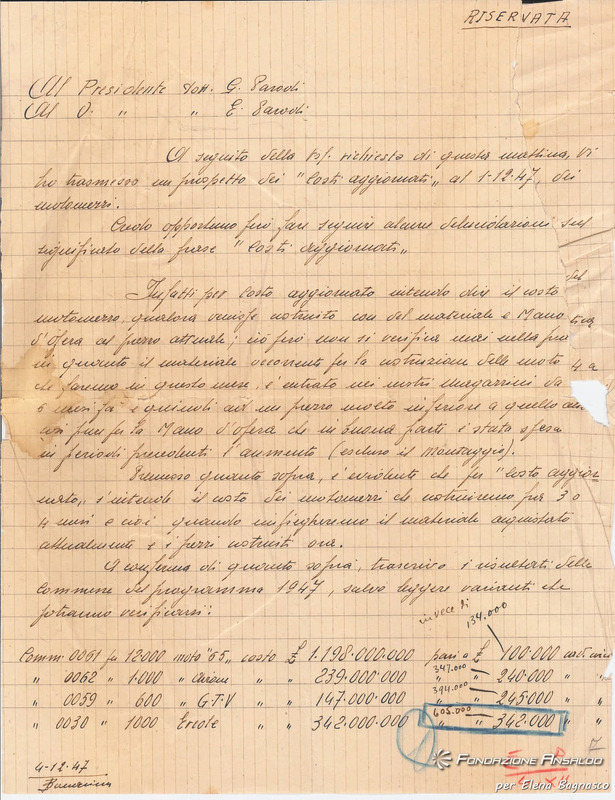 RISERVATA
Al Presidente Dott. G. Parodi
Al V. " " E. Parodi
A seguito della Vs/. richiesta di questa mattina, Vi
ho trasmesso un prospetto dei "Costi aggiornati" al 1-12-47, dei
motomezzi.
Credo opportuno però fare seguire alcune delucidazioni sul
significato della frase "Costi aggiornati"
Infatti per Costo aggiornato intendo dire il costo del
motomezzo, qualora venisse costruito con del materiale e Mano
d'opera al prezzo attuale; ciò però non si verifica mai nella
in quanto il materiale occorrente per la costruzione delle moto
che faremo in questo mese, è entrato nei nostri magazzini da 4 a
5 mesi fa e quindi ad un prezzo molto inferiore a quello
così pure per la Mano d'opera che in buona parte è stata spesa
in periodi precedenti l'aumento (escluso il Montaggio).
Premesso quanto sopra, è evidente che per "Costo aggior-
nato" s'intende il costo dei motomezzi che costruiremo fra 3 o
4 mesi e cioè quando impiegheremo il materiale acquistato
attualmente e i pezzi costruiti ora.
A conferma di quanto sopra, trascrivo i risultati delle
Commesse del programma 1947, salvo leggere varianti che
potranno verificarsi:
invece di
134.000
Comm. 0061 per 12000 moto "65" costo £ 1.198.000.000 pari a £ 100.000
347.000
" 0062 " 1.000 " Airone " " 239.000.000 " " 240.000 " "
394.000
" 0059 " 600 " G.T.V " " 147.000.000 " " 245.000 " "
605.000
" 0030 " 1000 Ercole " " 342.000.000 " " 342.000 " "
4-12-47
FONDAZIONE ANSALDO
per Elena Bagnasco